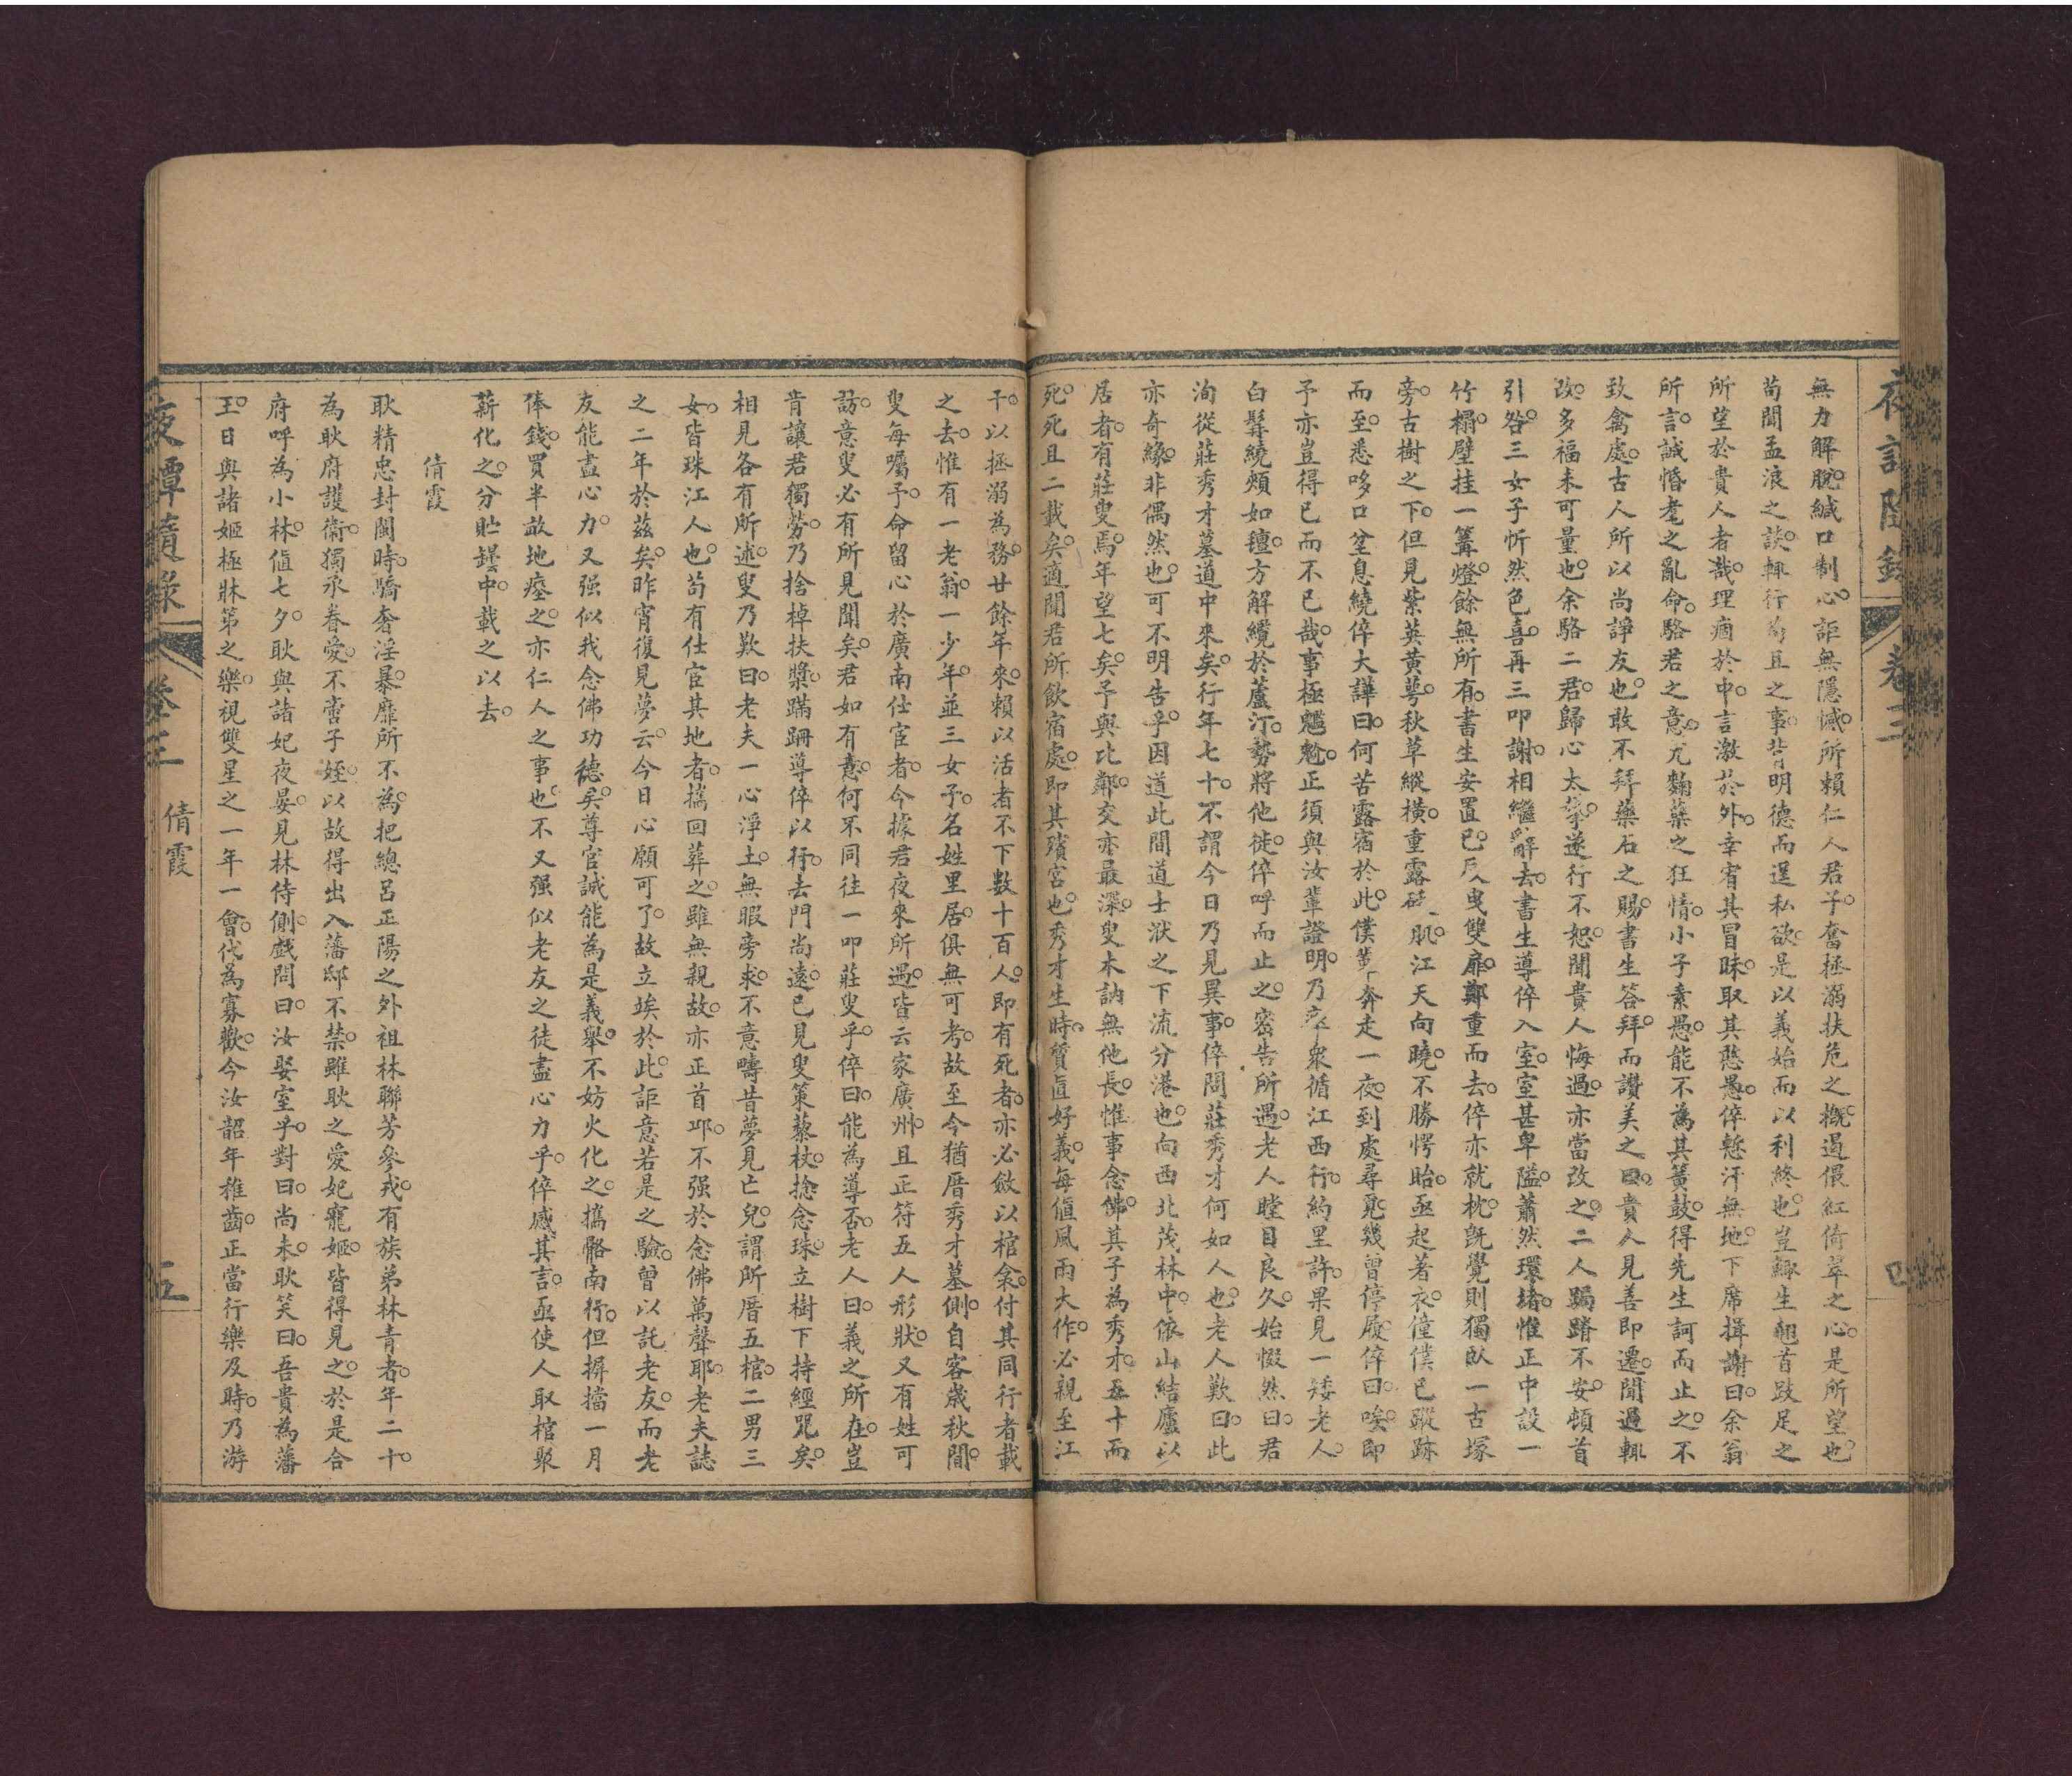 無力解脫。緘口制心。詎無隱憾。所賴仁人君子。奮拯溺扶危之概。遏偎紅倚翠之心。是所望也。
苟聞孟浪之談。輒行苟且之事。背明德而逞私欲。是以義始而以利終也。豈鯫生翹首跂足之
所望於貴人者哉。理痼於中。言激於外。幸宥其冒昧。取其憨愚。倅慙汗無地。下席揖謝曰。余翁
所言。誠惛耄之亂命。駱君之意。尤麴蘖之狂情。小子素愚。能不為其簧鼓。得先生訶而止之。不
致禽處。古人所以尚諍友也。敢不拜藥石之賜。書生答拜。而讚美之曰。貴人見善即遷。聞過輒
改。多福未可量也。余駱二君。歸心太孳。遂行不恕。聞貴人悔過。亦當改之。二人跼蹐不安。頓首
引咎。三女子忻然色喜。再三叩謝。相繼辭去。書生導倅入室。室甚卑隘。蕭然環堵。惟正中設一
竹榻。壁挂一篝燈。餘無所有。書生安置已。反曳雙扉。鄭重而去。倅亦就枕。旣覺則獨臥一古塚
旁。古樹之下。但見紫英黃萼。秋草縱橫。重露砭肌。江天向曉。不勝愕眙。亟起著衣。僮僕已蹤跡
而至。悉哆口坌息。繞倅大譁曰。何苦露宿於此。僕輩奔走一夜。到處尋覓。幾曾停履。倅曰。唉。即
予亦豈得已而不已哉。事極魑魎。正須與汝輩證明。乃率衆循江西行。約里許。果見一矮老人。
白髯繞頰如氊。方解纜於蘆汀。勢將他徙。倅呼而止之。密告所遇。老人瞠目良久。始惙然曰。君
洵從莊秀才墓道中來矣。行年七十。不謂今日乃見異事。倅問莊秀才何如人也。老人歎曰。此
亦奇緣。非偶然也。可不明告乎。因道此間道士洑之下流分港也。向西北茂林中。依山結廬以
居者。有莊叟焉。年望七矣。予與比鄰。交亦最深。叟木訥無他長。惟事念佛。其子為秀才。五十而
死。死且二載矣。適聞君所飲宿處。即其殯宮也。秀才生時。質直好義。每值風雨大作。必親至江
干。以拯溺為務。廿餘年來。賴以活者。不下數十百人。即有死者。亦必斂以棺衾。付其同行者載
之去。惟有一老翁。一少年。並三女子。名姓里居。俱無可考。故至今猶厝秀才墓側。自客歲秋間。
叟每囑予。命留心於廣南仕宦者。今據君夜來所遇。皆云家廣州。且正符五人形狀。又有姓可
訪。意叟必有所見聞矣。君如有意。何不同往一叩莊叟乎。倅曰。能為導否。老人曰。義之所在。豈
肯讓君獨勞。乃捨棹扶槳。蹣跚導倅以行。去門尚遠。已見叟策藜杖。捻念珠。立樹下持經咒矣。
相見各有所述。叟乃歎曰。老夫一心淨土。無暇旁求。不意疇昔夢見亡兒。謂所厝五棺。二男三
女。皆珠江人也。苟有仕宦其地者。擕回葬之。雖無親故。亦正首邱。不强於念佛萬聲耶。老夫誌
之二年於茲矣。昨宵復見夢云。今日心願可了。故立埃於此。詎意若是之驗。曾以託老友。而老
友能盡心力。又强似我念佛功德矣。尊官誠能為是義舉。不妨火化之。擕骼南行。但摒擋一月
俸錢。買半畝地瘞之。亦仁人之事也。不又强似老友之徒盡心力乎。倅感其言。亟使人取棺聚
薪化之。分貯罎中。載之以去。
倩霞
耿精忠封閩時。驕奢淫暴。靡所不為。把總呂正陽之外祖林聯芳參戎。有族弟林青者。年二十。
為耿府護衞。獨承眷愛。不啻子姪。以故得出入藩邸不禁。雖耿之愛妃寵姬。皆得見之。於是合
府呼為小林。值七夕。耿與諸妃夜晏。見林侍側。戲問曰。汝娶室乎。對曰。尚未。耿笑曰。吾貴為藩
王。日與諸姬極牀第之樂。視雙星之一年一會。代為寡歡。今汝韶年稚齒。正當行樂及時。乃游
夜譚隨錄
卷三
倩霞
五